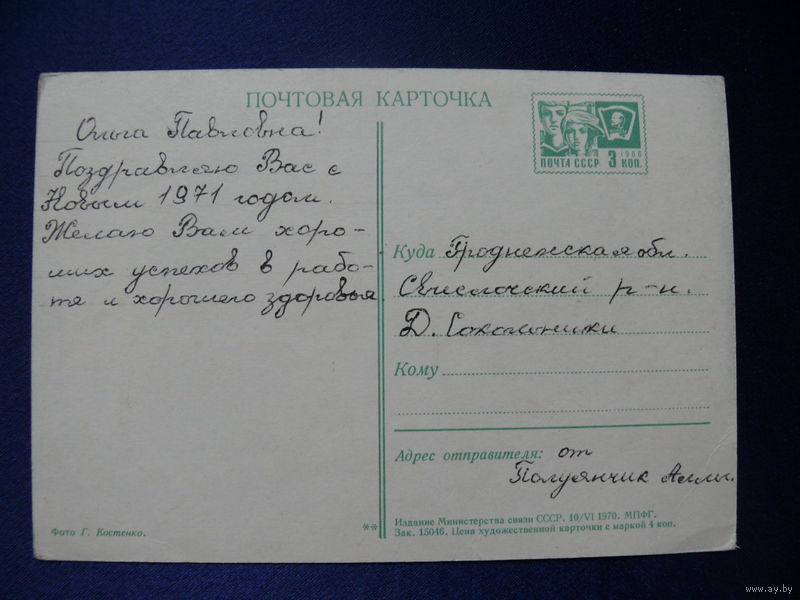 ПОЧТОВАЯ КАРТОЧКА
Ольга Павловна!
Поздравляю Вас с
Новым 1971 годом.
Желаю Вам хоро-
ших успехов в рабо-
те и хорошего здоровья.
1966
ПОЧТА СССР 3 КОП.
Куда Гродненская обл.
Свислочский р-н.
Д. Сокольники
Кому
Адрес отправителя: от
Полуянчик Аллы.
Фото Г. Костенко.
**
Издание Министерства связи СССР. 10/VI 1970. МПФГ.
Зак. 15046. Цена художественной карточки с маркой 4 коп.
www.ay.by